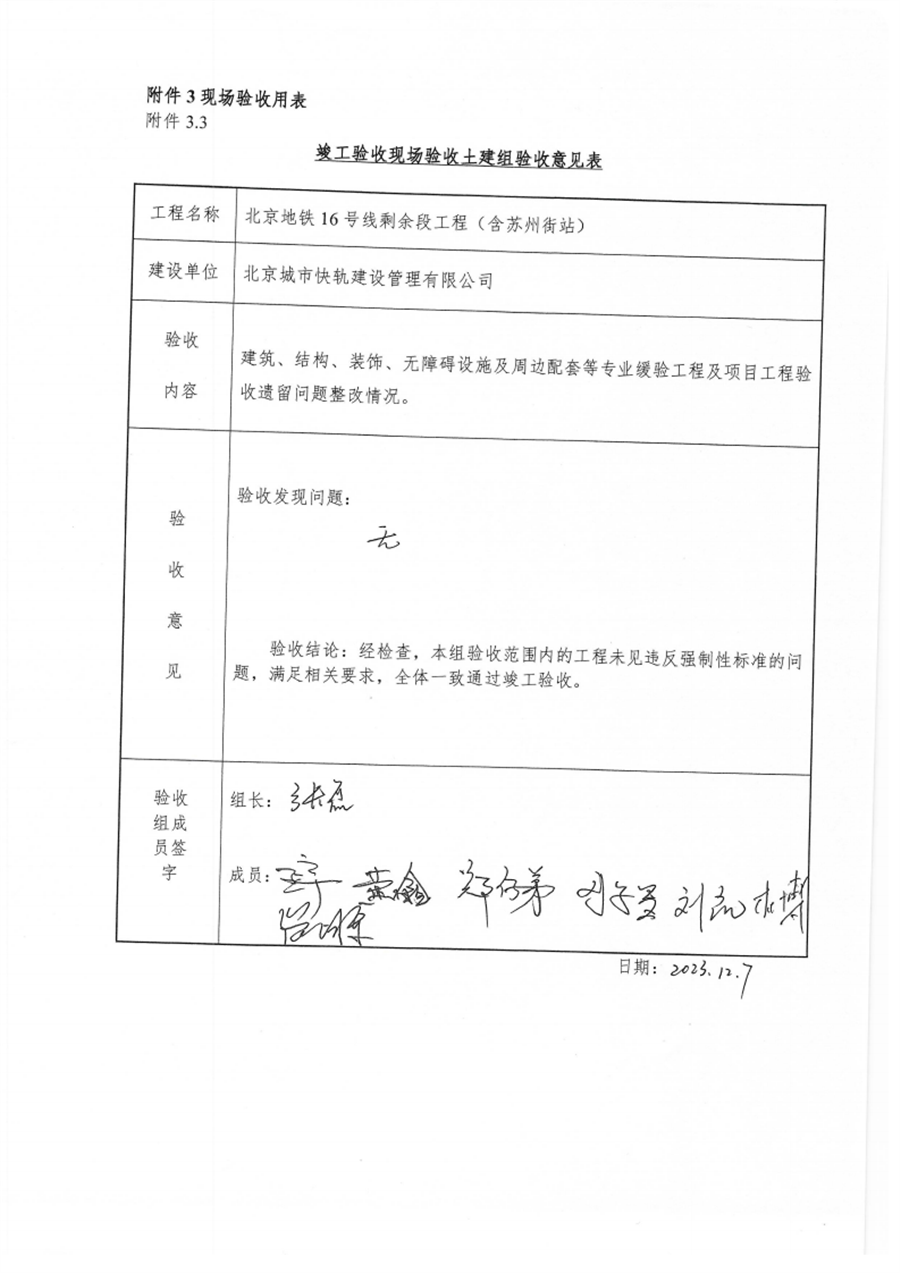 附件 3 现场验收用表
附件 3.3
竣工验收现场验收土建组验收意见表
工程名称
北京地铁 16 号线剩余段工程（含苏州街站）
建设单位
北京城市快轨建设管理有限公司
验收
内容
建筑、结构、装饰、无障碍设施及周边配套等专业缓验工程及项目工程验
收遗留问题整改情况。
验
收
意
见
验收发现问题：
无
验收结论：经检查，本组验收范围内的工程未见违反强制性标准的问
题，满足相关要求，全体一致通过竣工验收。
验收
组成
员签
字
组长：张磊
成员：
日期：2023.12.7